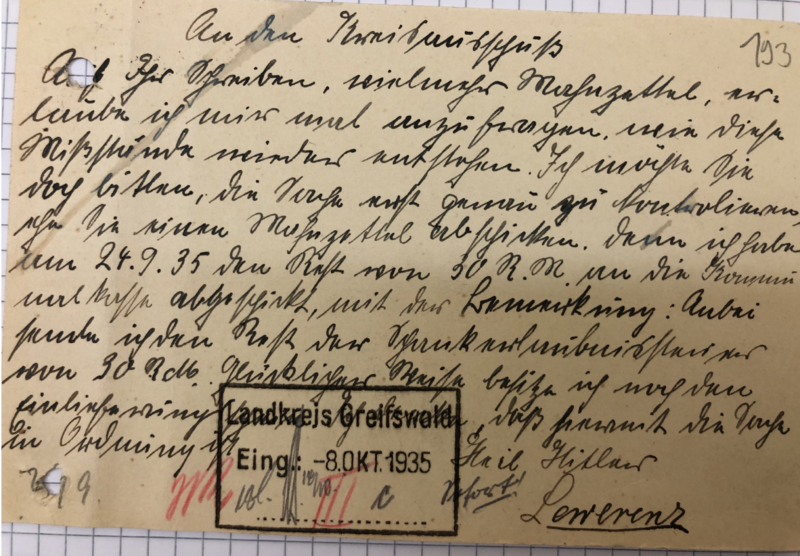 An den Kreisausschuß
193
Auf Ihr Schreiben, vielmehr Mahnzettel, er-
laube ich mir mal anzufragen, wie diese
Mißstände wieder entstehen. Ich möchte Sie
doch bitten, die Sache erst genau zu kontrolieren,
ehe Sie einen Mahnzettel abschicken. denn ich habe
am 24.9.35 den Rest von 30 R.M. an die Kommu
nalkasse abgeschickt, mit der Bemerkung: Anbei
sende ich den Rest der Schankerlaubnissteuer
von 30 RM. Glücklicher Weise besitze ich noch den
Einlieferung daß hiermit die Sache
in Ordnung ist
Landkreis Greifswald
Eing.: -8.OKT.1935
Heil Hitler
Sofort!
Lewerenz
III
c